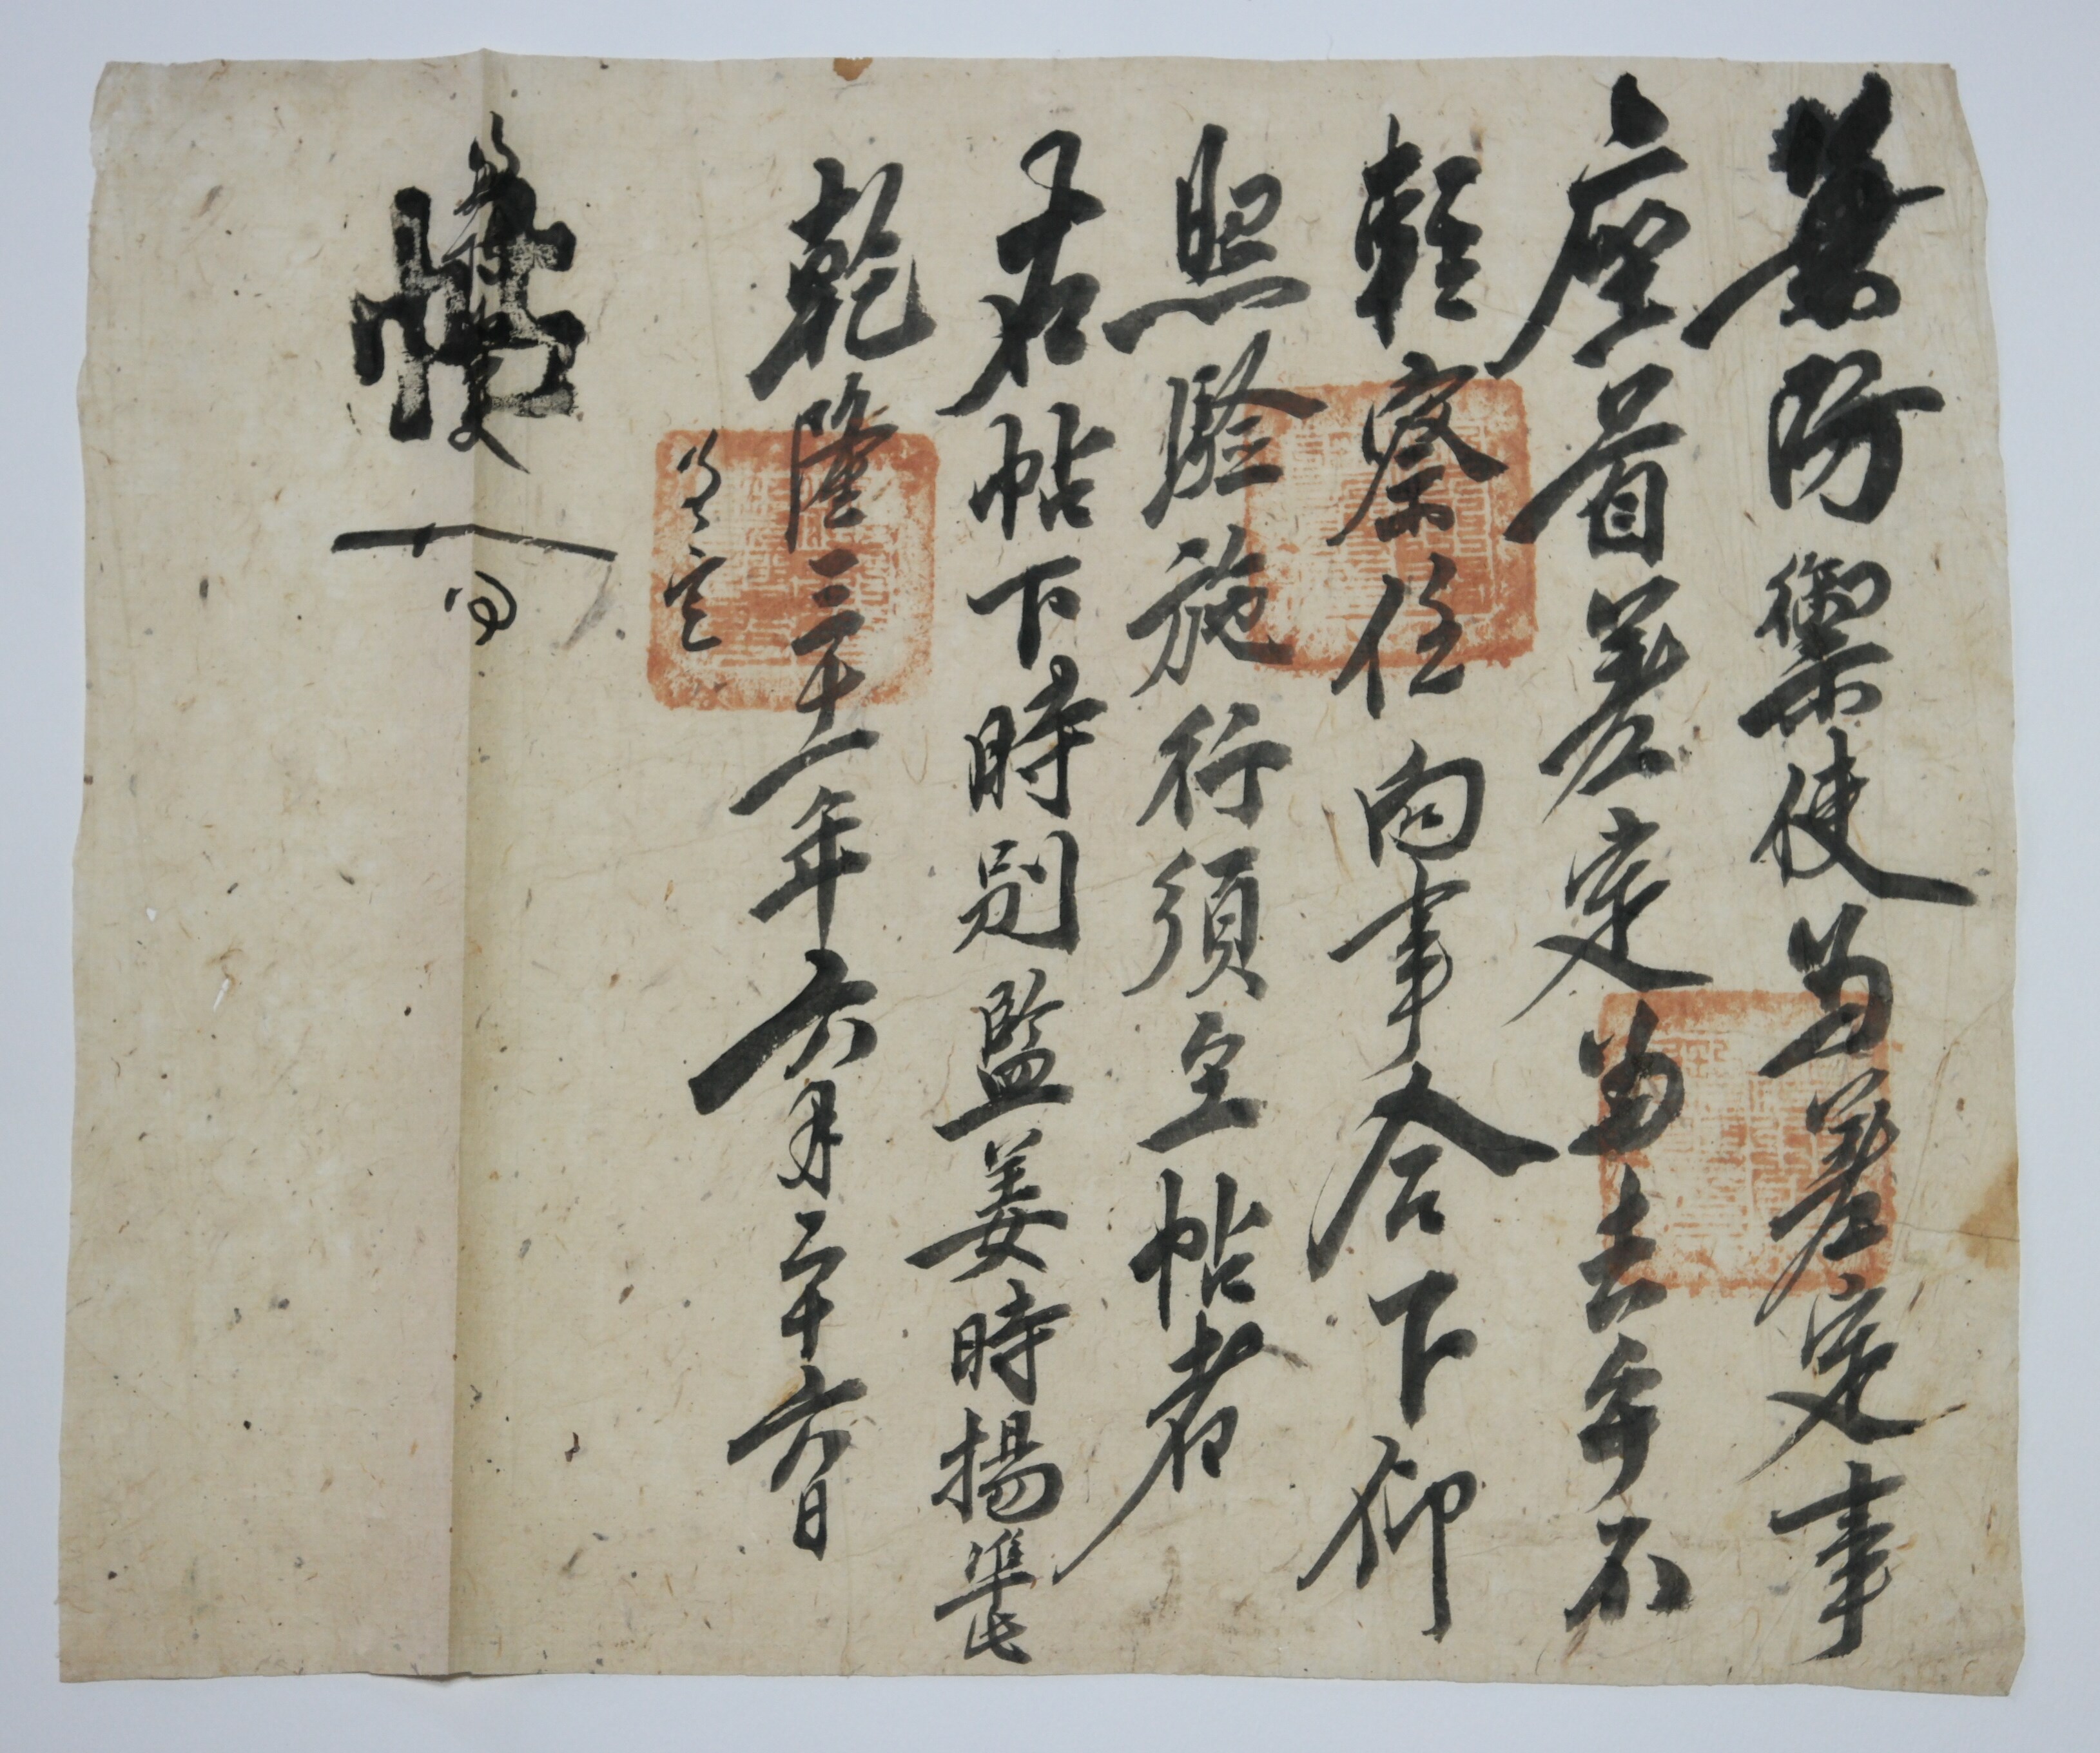 兼防禦使爲差定事
座首差定爲去乎不
輕察任向事合下仰
照驗施行須至帖者
右帖下時別監姜時揚準此
乾隆三十一年六月二十六日
差定
帖